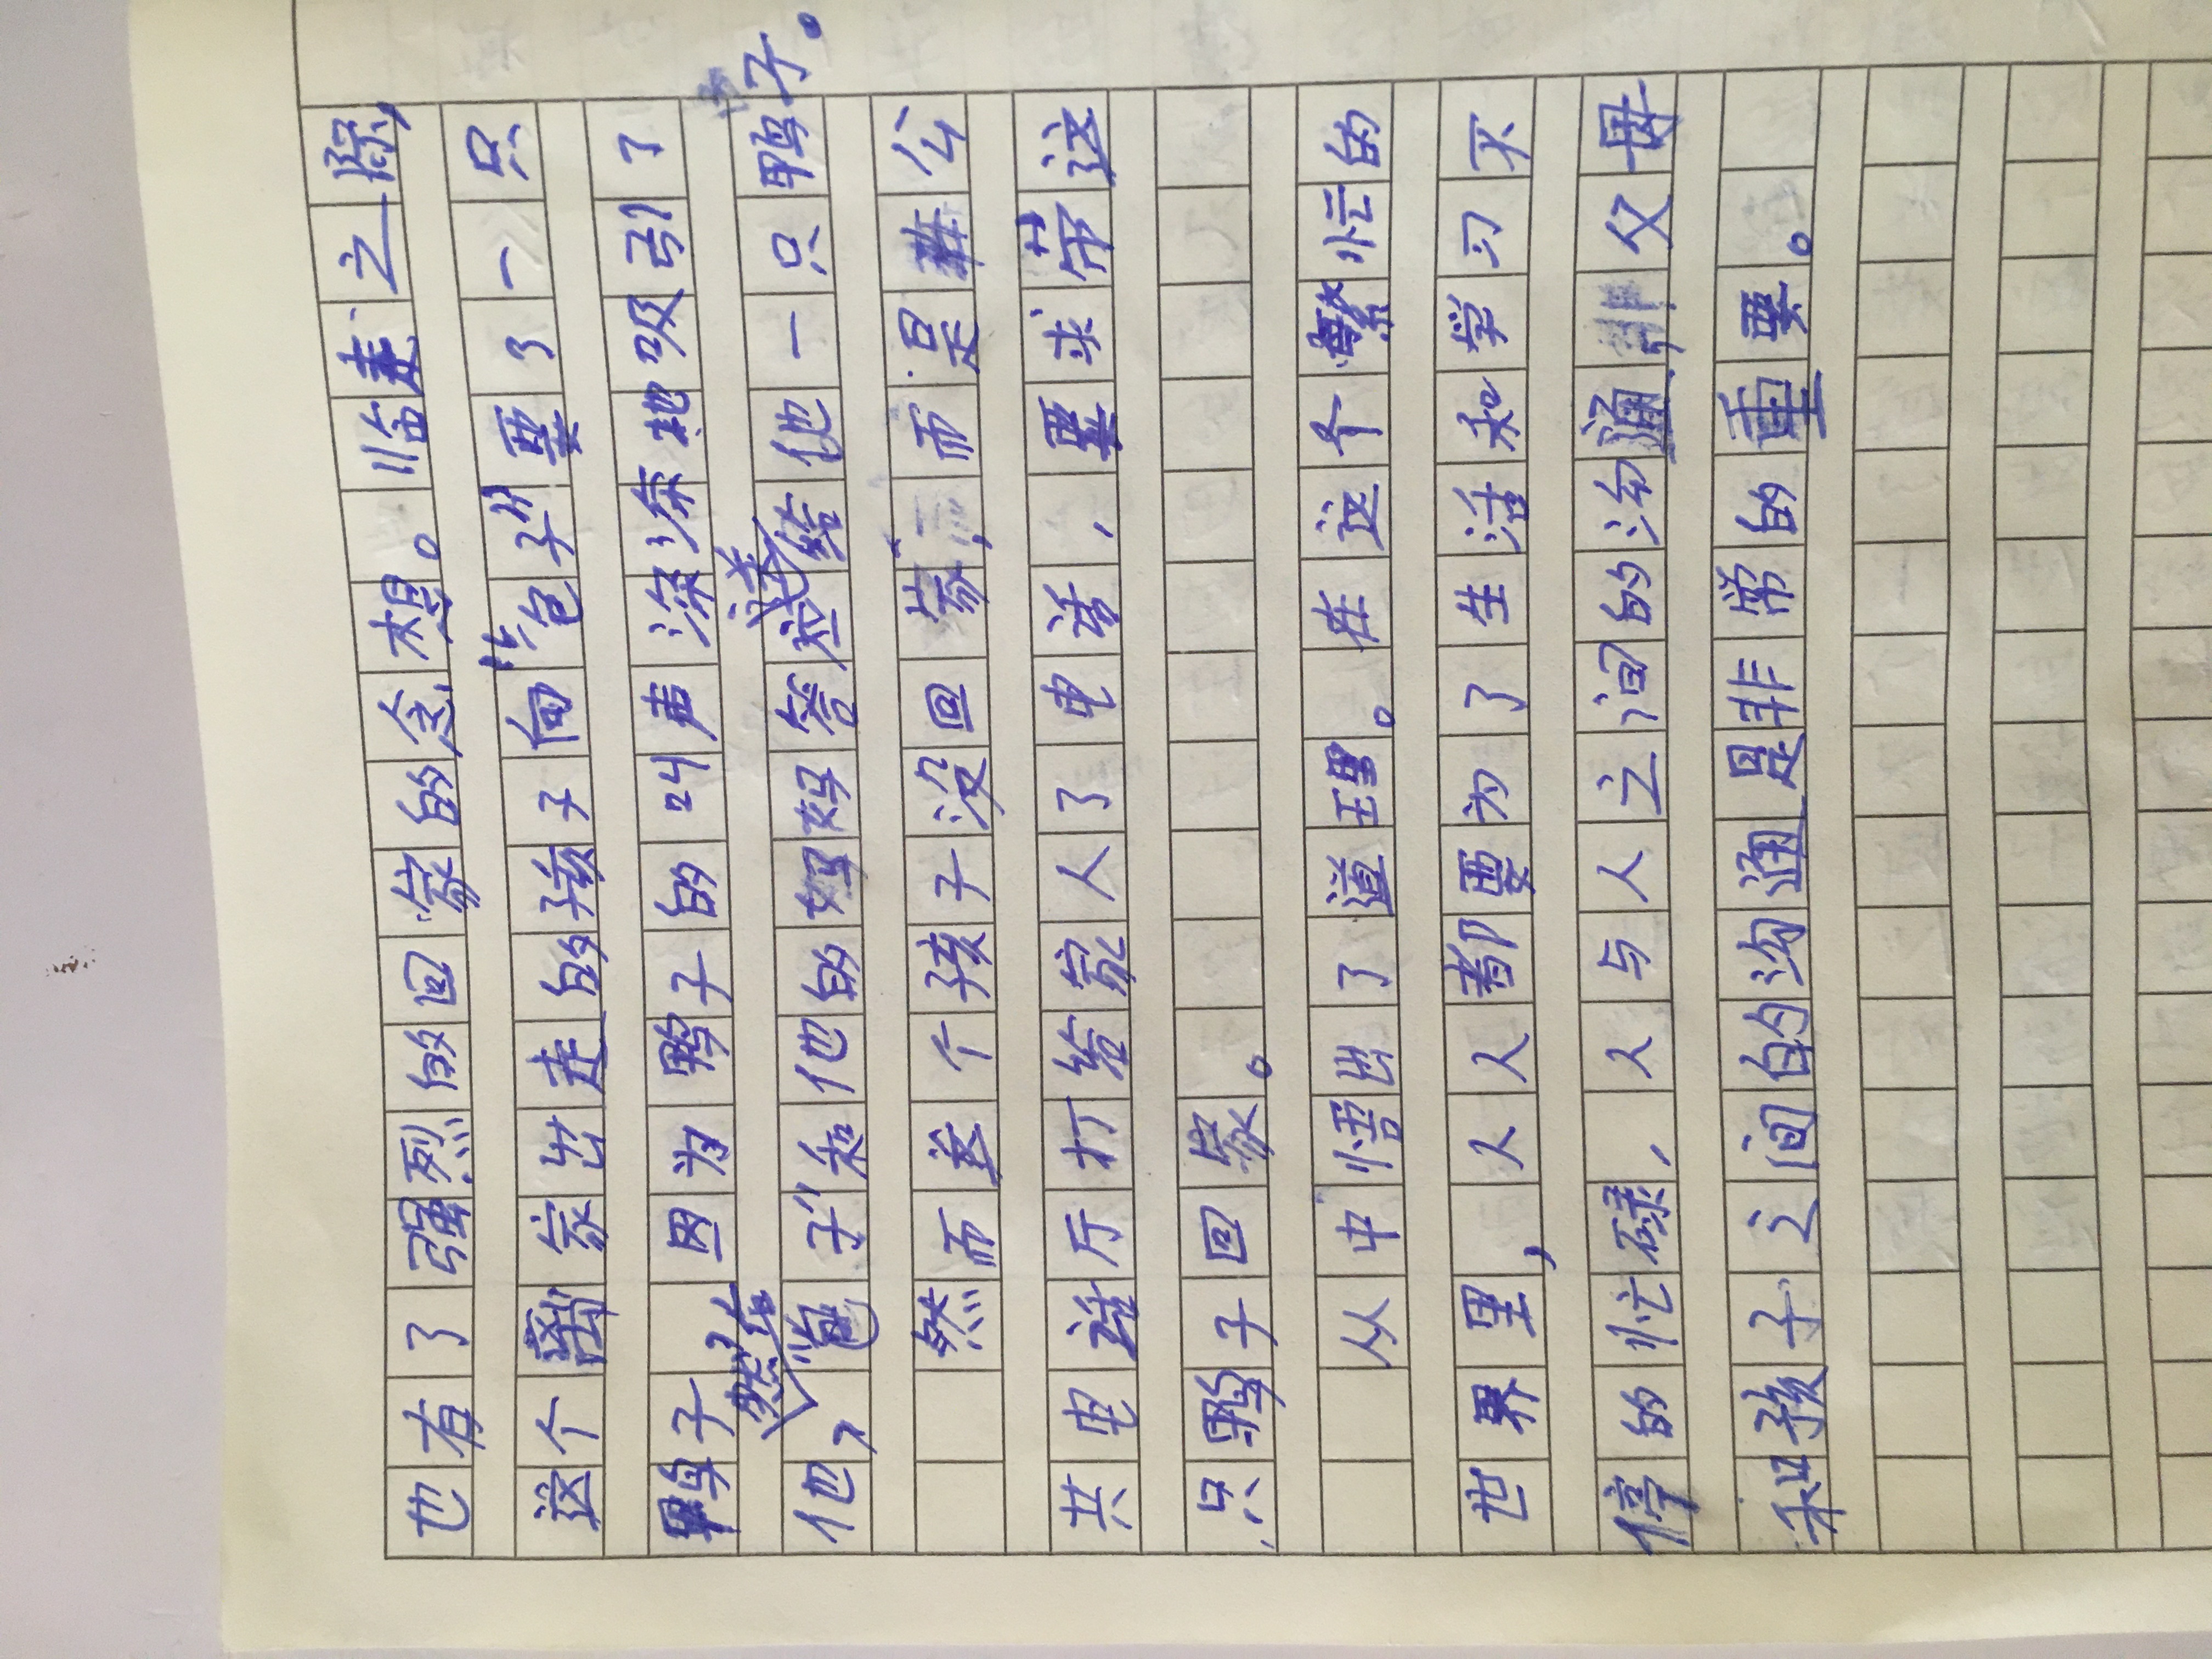 也有了强烈的回家的念想。临走之际,
这个离家出走的孩子向“包子”要了一只
鸭子 因为鸭子的叫声深深地吸引了
他,“包子”和他的妈妈答应给他一只鸭子。
然而这个孩子没回家,而是公
共电话厅打给家人了电话,要求带这
只鸭子回家。
从中悟出了道理。在这个繁忙的
世界里,人人都要为了生活和学习不
停的忙碌,人与人之间的沟通,父母
和孩子之间的沟通是非常的重要。